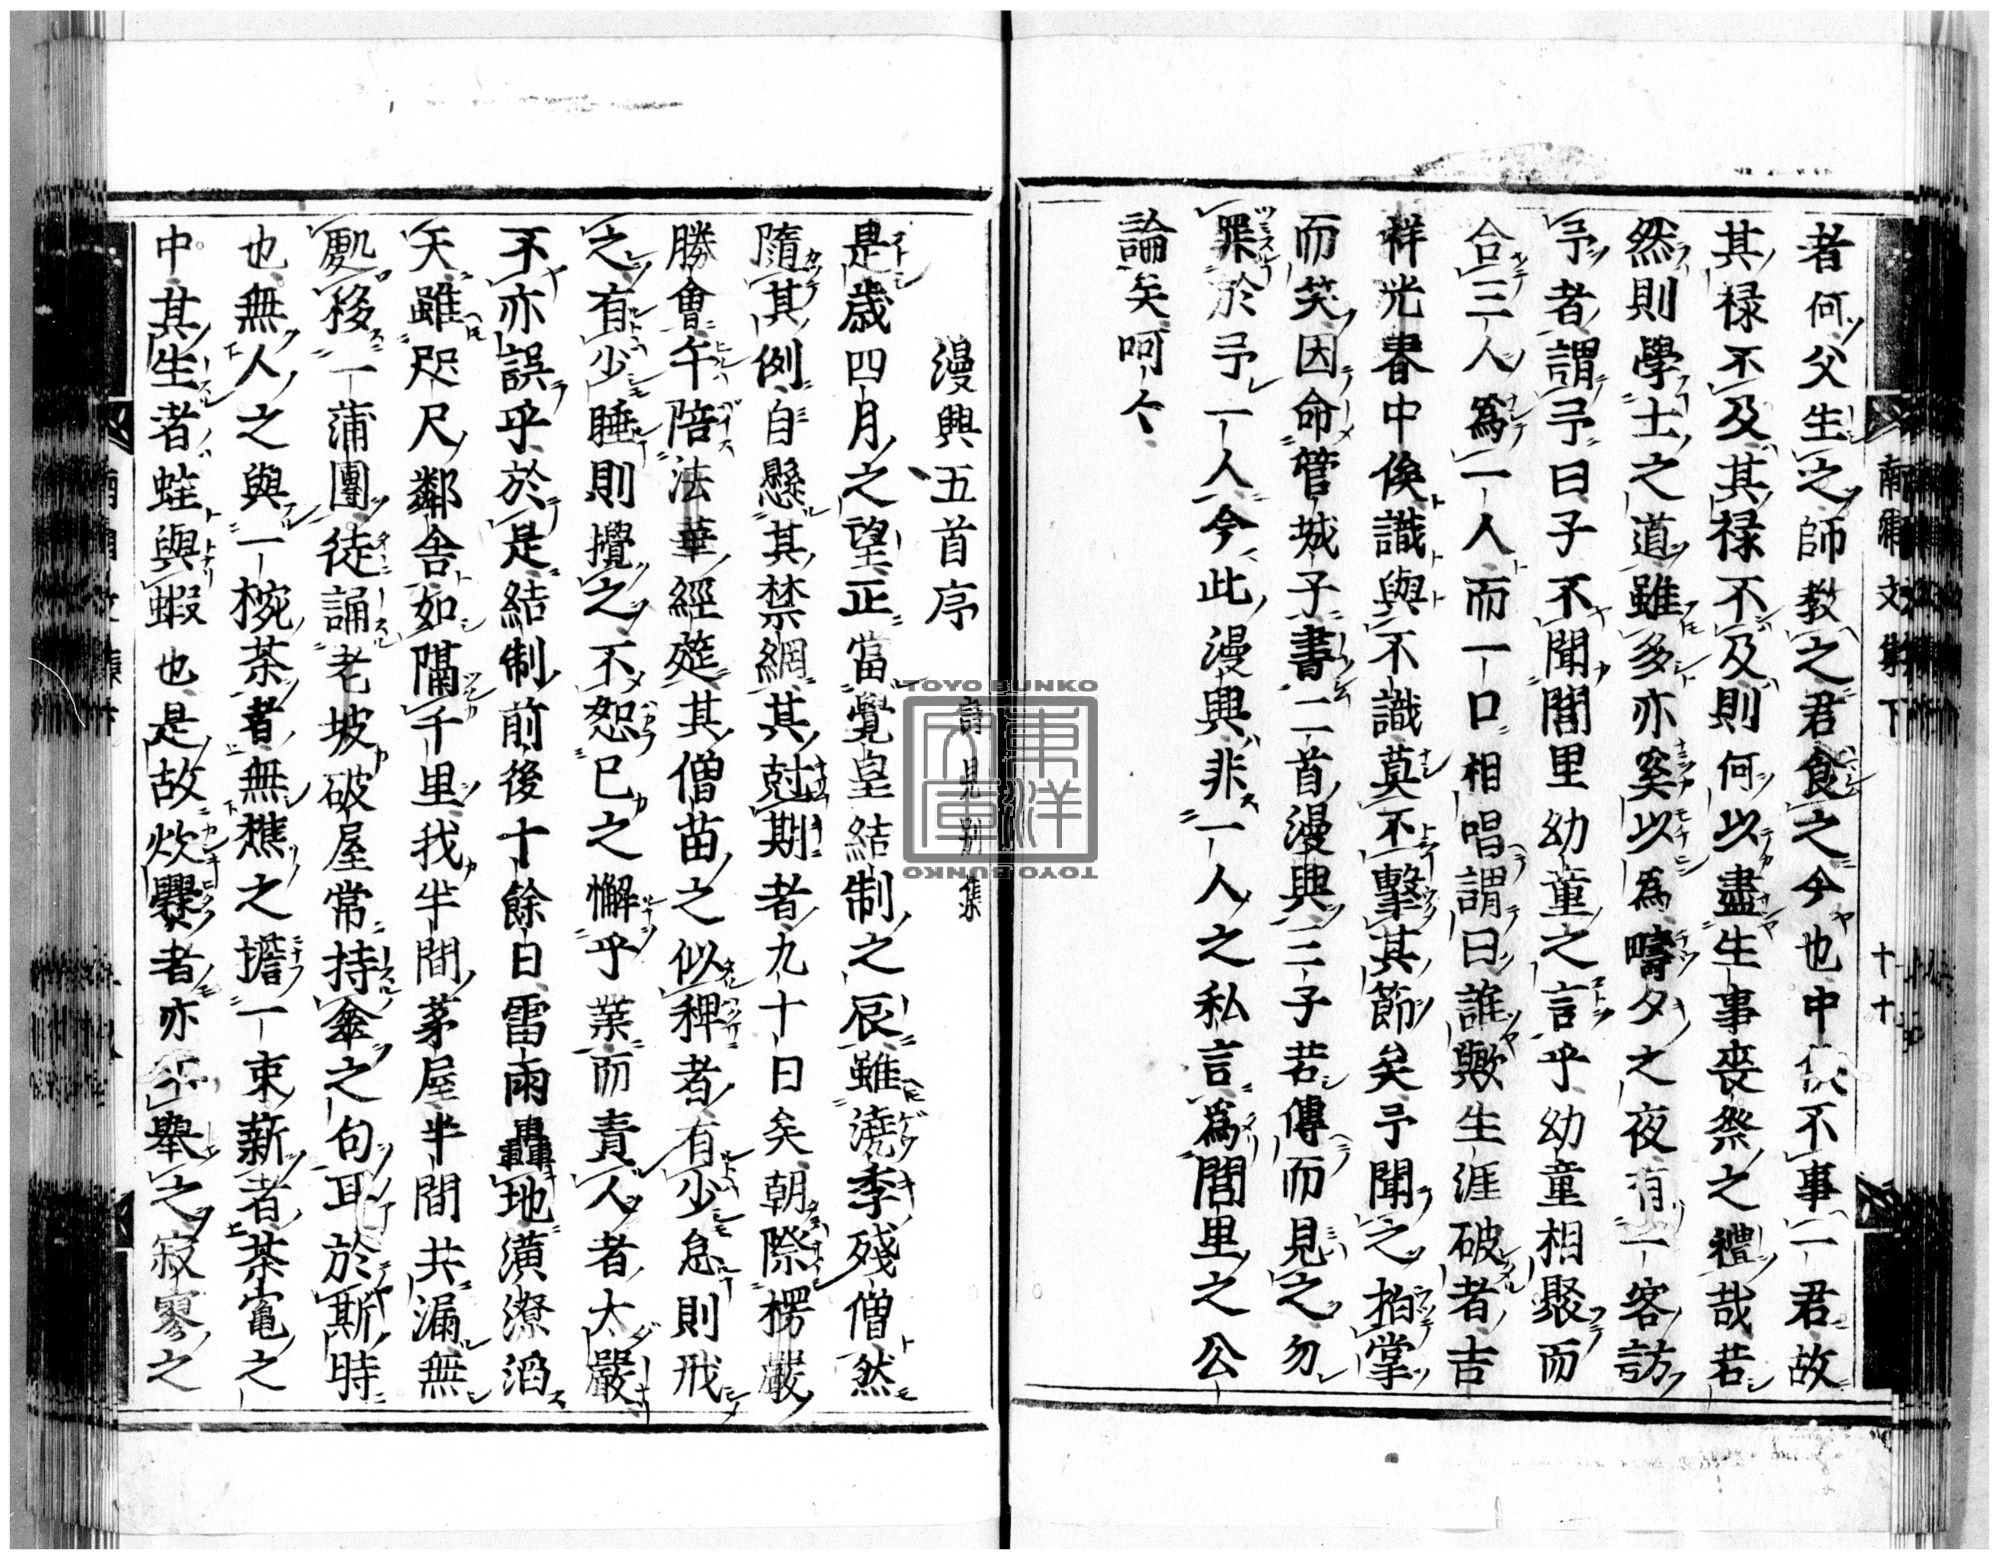 者何父生之師教之君食之今也中不事一君故
其祿不及其祿不及則何以盡生事喪祭之禮哉若
然則學士之道雖多亦奚以為疇夕之夜有一客訪
予者謂予曰子不聞閭里幼童之言乎幼童相聚而
合三人爲一人而一口相唱謂曰誰歟生涯破者吉
祥光春中俟識與不識莫不擊其節矣予聞之拍掌
而笑因命管城子書二首漫興二子若傳而見之勿
罪於予一人今此漫興非一人之私言爲閭里之公
論矣呵々
漫興五首序 詩見別集
是歲四月之望正當覺皇結制之辰雖澆季殘僧然
隨其例自懸其禁網其尅期者九十日矣朝際楞嚴
勝會午陪法華經筵其僧苗之似稗者有少怠則戒
之有少睡則攪之不恕已之懈乎業而責人者太嚴
不亦誤乎於是結制前後十餘日雷雨轟地潢潦滔
天雖咫尺鄰舍如隔千里我半間茅屋半間共漏無
處移一蒲團徒誦老坡破屋常持傘之句耳於斯時
也無人之與一椀茶者無樵之擔一束薪者茶竈之
中其生者蛙與蝦也是故炊爨者亦不擧之寂寥之
南浦文集下
東洋文庫
TOYO BUNKO
TOYO BUNKO